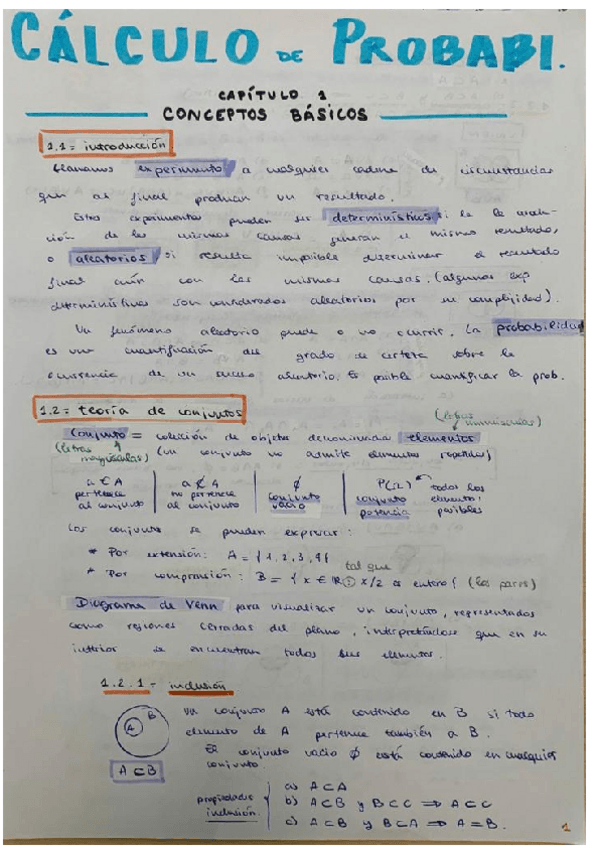 CÁLCULO DE PROBABI.
CAPÍTULO 1
CONCEPTOS BÁSICOS
1.1= introducción
llamamos experimento a cualquier cadena de circunstancias
que al final producen un resultado.
Estos experimentos pueden ser determinísticos si la
ción de las mismas causas generan el mismo resultado,
o aleatorios si resulta imposible determinar el resultado
final aún con las mismas causas. (algunos exp
determinísticos son considerados aleatorios por su complejidad).
Un fenómeno aleatorio puede o no ocurrir. La probabilidad
es una cuantificación del grado de certeza sobre la
ocurrencia de un suceso aleatorio. Es posible cuantificar la prob.
1.2= teoría de conjuntos
(letras minúsculas)
Conjunto = colección de objetos denominados elementos
(letras mayúsculas) (un conjunto no admite elementos repetidos)
a ∈ A pertenece al conjunto
a ∉ A no pertenece al conjunto
∅ conjunto vacío
P(Ω) conjunto potencia
todos los elementos posibles
Los conjuntos se pueden expresar:
* Por extensión: A = {1, 2, 3, 4}
tal que
* Por comprensión: B = {x ∈ ℝ | x/2 es entero} (los pares)
Diagrama de Venn para visualizar un conjunto, representados
como regiones cerradas del plano, interpretándose que en su
interior se encuentran todos sus elementos.
1.2.1- inclusión
A B
A ⊂ B
un conjunto A está contenido en B si todo
elemento de A pertenece también a B.
El conjunto vacío ∅ está contenido en cualquier
conjunto
propiedades inclusión.
a) A ⊂ A
b) A ⊂ B y B ⊂ C ⇒ A ⊂ C
c) A ⊂ B y B ⊂ A ⇒ A = B.
1